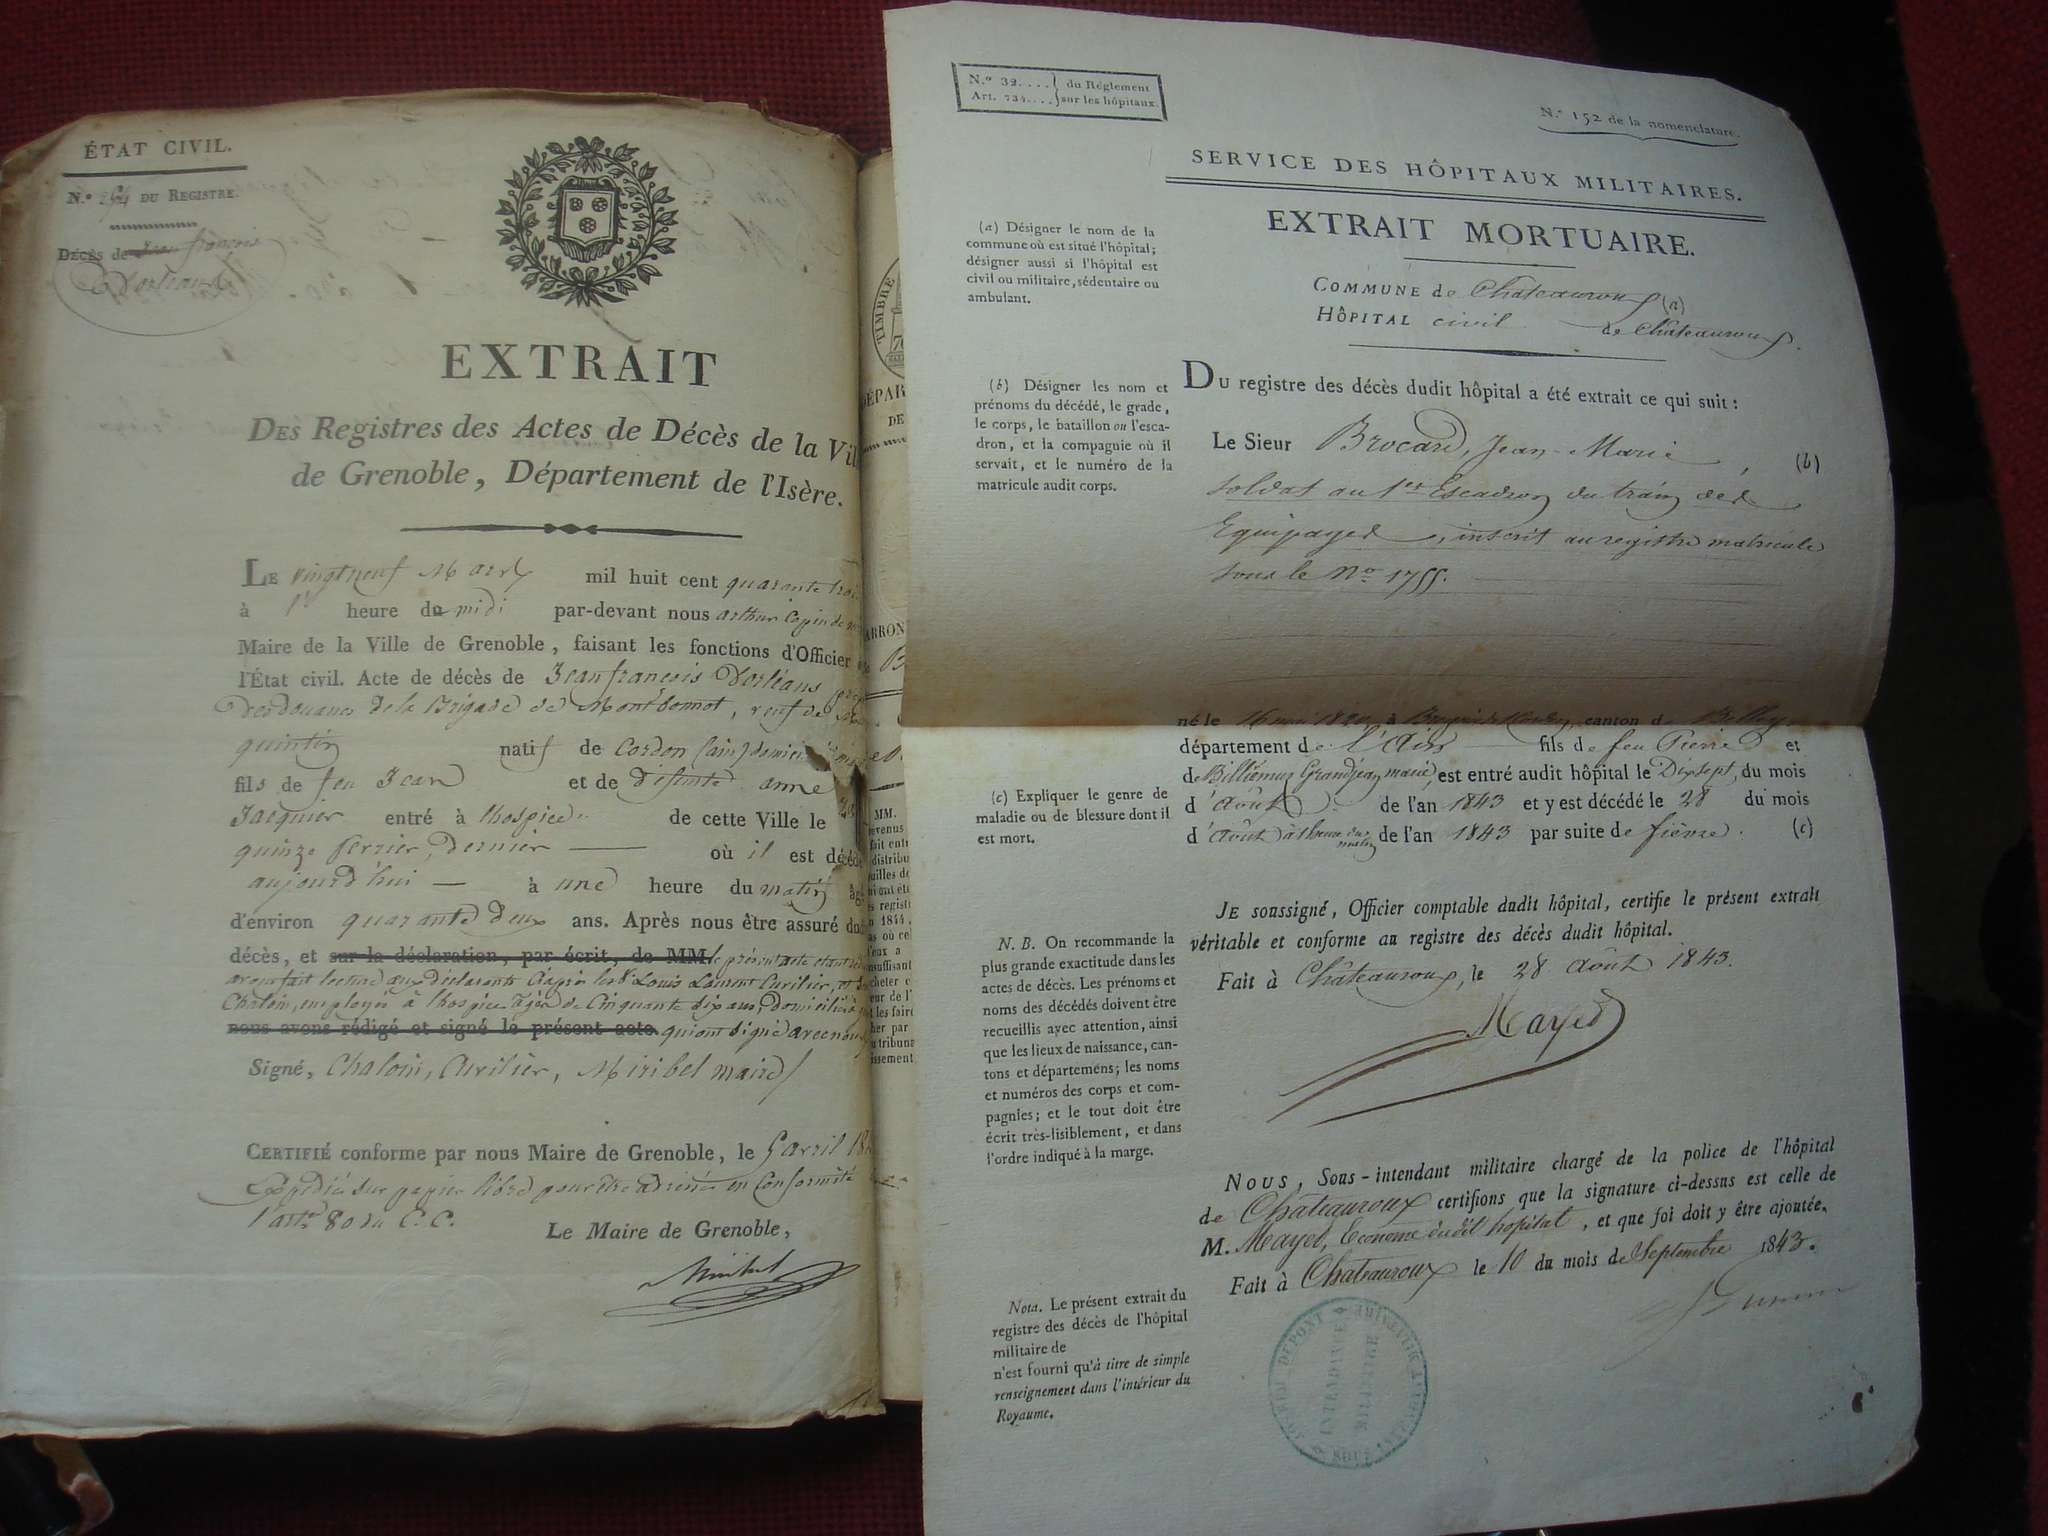 ÉTAT CIVIL.
N.º DU REGISTRE.
Décès de Jean françois
Dorléans
EXTRAIT
Des Registres des Actes de Décès de la Vil
de Grenoble, Département de l'Isère.
LE vingt neuf Mars mil huit cent quarante troi
à 1e heure du midi par-devant nous arthur Copin de
Maire de la Ville de Grenoble, faisant les fonctions d'Officier
l'État civil. Acte de décès de Jean françois Dorléans
des douanes de la Brigade de Montbonnot, veuf de
quintin natif de Cordon (ain) domicilié
fils de feu Jean et de défunte anne
Jacquier entré à l'hospice de cette Ville le
quinze fevrier dernier — où il est décédé
aujourd'hui — à une heure du matin
d'environ quarante deux ans. Après nous être assuré du
décès, et sur la déclaration, par écrit, de MM. le présent acte étant
avons fait lecture aux déclarants Louis Laurent Curilier, et
Chaloin, employés à l'hospice âgés de Cinquante dix ans, domiciliés
nous avons rédigé et signé le présent acte. qui ont signé avec nous
Signé, Chaloin, Curilier, Miribel maire
CERTIFIÉ conforme par nous Maire de Grenoble, le 5 avril 18
Expédié sur papier libre pour être adressé en Conformité
l'art. 80 du C. C.
Le Maire de Grenoble,
Miribel
TIMBRE
DÉPAR
DE
ARRON
B
MM.
revenus
fait entr
distribu
uilles de
s registr
n 1844,
as où cel
l'eux a
nsuffisant
cheter c
eur de l'
t les fair
her par
tribuna
issement
N.º 32.... } du Réglement
Art. 734.... } sur les hôpitaux.
N.º 152 de la nomenclature.
SERVICE DES HÔPITAUX MILITAIRES.
EXTRAIT MORTUAIRE.
(a) Désigner le nom de la
commune où est situé l'hôpital;
désigner aussi si l'hôpital est
civil ou militaire, sédentaire ou
ambulant.
COMMUNE de Châteauroux (a)
HÔPITAL civil de Châteauroux.
DU registre des décès dudit hôpital a été extrait ce qui suit :
(b) Désigner les nom et
prénoms du décédé, le grade,
le corps, le bataillon ou l'esca-
dron, et la compagnie où il
servait, et le numéro de la
matricule audit corps.
Le Sieur Brocard, Jean-Marie, (b)
soldat au 1er Escadron du train des
Equipages, inscrit au registre matricule
sous le No 1755.
né le 16 mai 18 à canton de Belley
département de l'Ain fils de feu Pierre et
de Billiemaz Grandjean marie, est entré audit hôpital le Dix sept, du mois
d'Août de l'an 1843 et y est décédé le 28 du mois
d'Août à 1 heure du matin de l'an 1843 par suite de fièvre. (c)
(c) Expliquer le genre de
maladie ou de blessure dont il
est mort.
JE soussigné, Officier comptable dudit hôpital, certifie le présent extrait
véritable et conforme au registre des décès dudit hôpital.
Fait à Châteauroux, le 28 Août 1843.
Mayet
N. B. On recommande la
plus grande exactitude dans les
actes de décès. Les prénoms et
noms des décédés doivent être
recueillis avec attention, ainsi
que les lieux de naissance, can-
tons et départemens; les noms
et numéros des corps et com-
pagnies; et le tout doit être
écrit très-lisiblement, et dans
l'ordre indiqué à la marge.
NOUS, Sous-intendant militaire chargé de la police de l'hôpital
de Châteauroux certifions que la signature ci-dessus est celle de
M. Mayet, Econome dudit hopital, et que foi doit y être ajoutée.
Fait à Chateauroux le 10 du mois de Septembre 1843.
Nota. Le présent extrait du
registre des décès de l'hôpital
militaire de
n'est fourni qu'à titre de simple
renseignement dans l'intérieur du
Royaume.
INTENDANCE
MILITAIRE